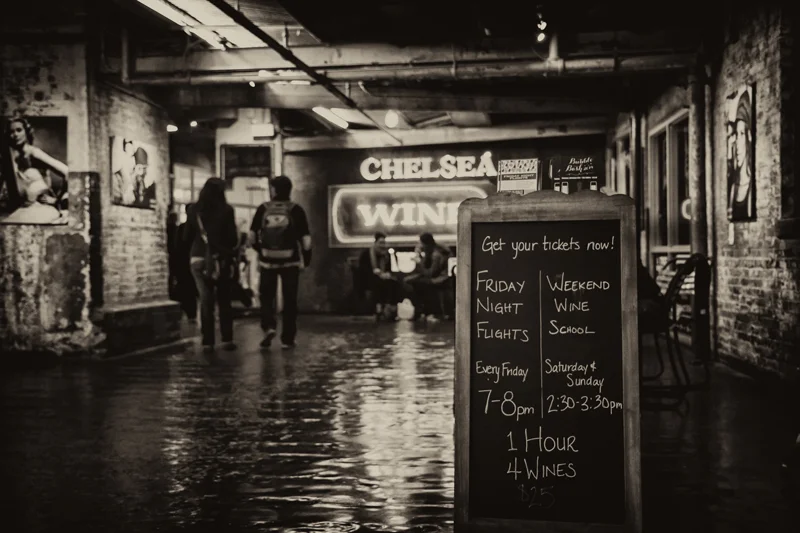 CHELSEA
WINE
Get your tickets now!
FRIDAY
NIGHT
FLIGHTS
Every Friday
7-8pm
WEEKEND
WINE
SCHOOL
Saturday &
Sunday
2:30-3:30pm
1 HOUR
4 WINES
$25